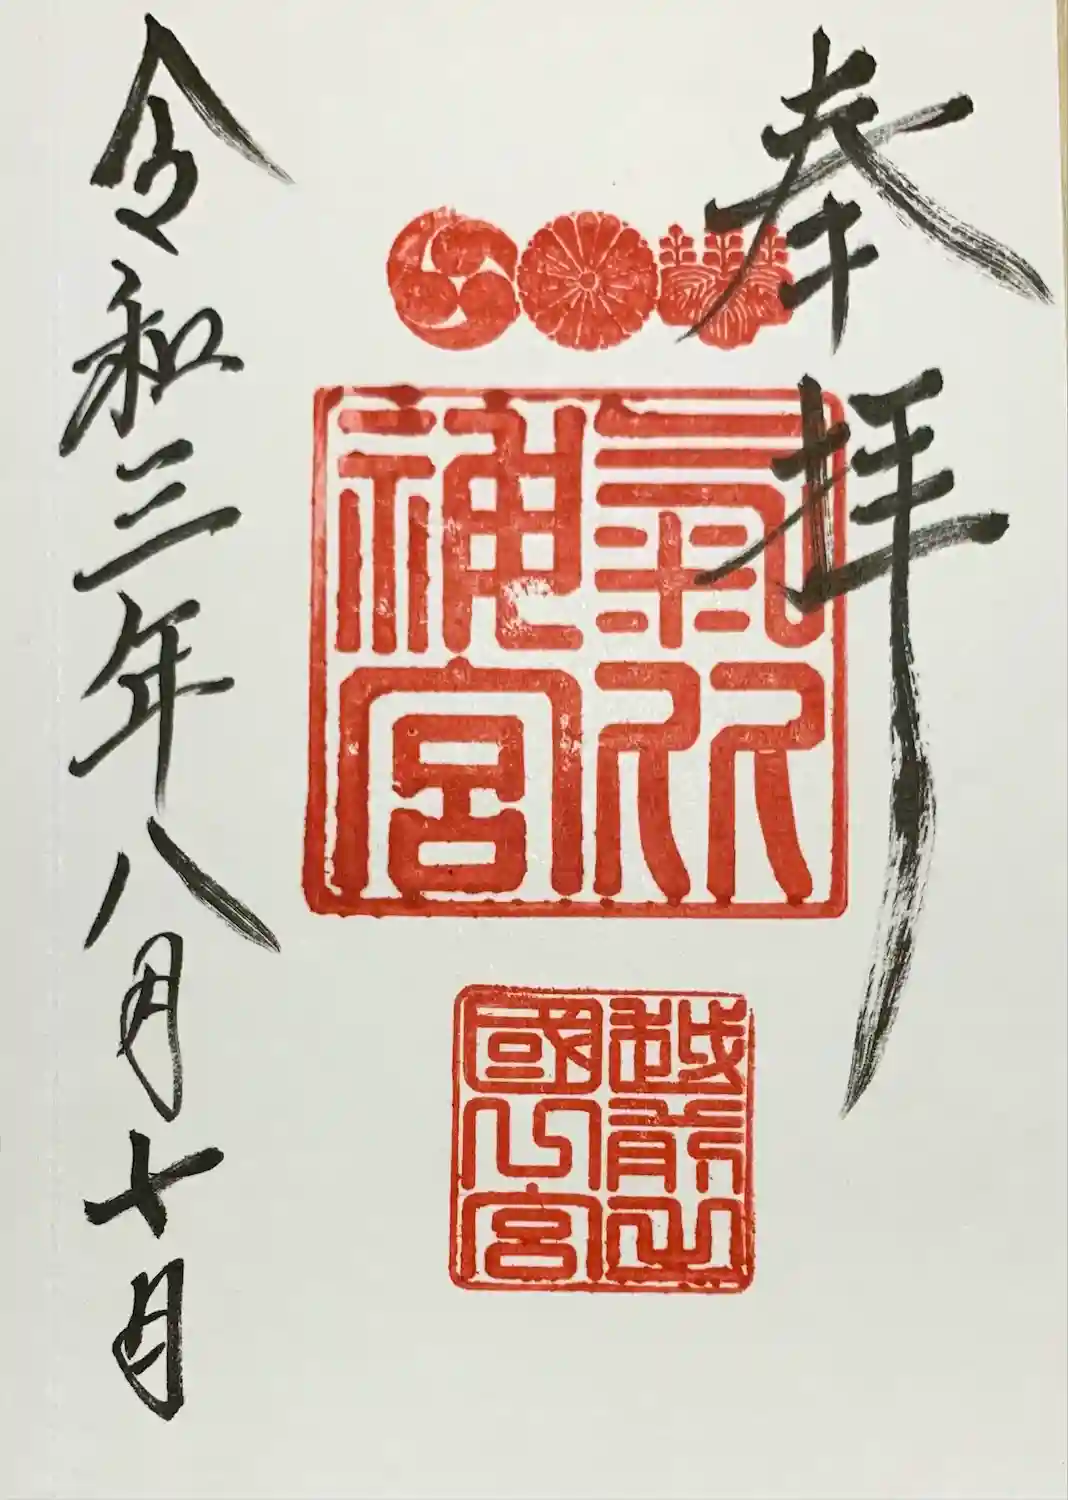 奉拝
氣比
神宮
越前之
國一宮
令和三年八月十日